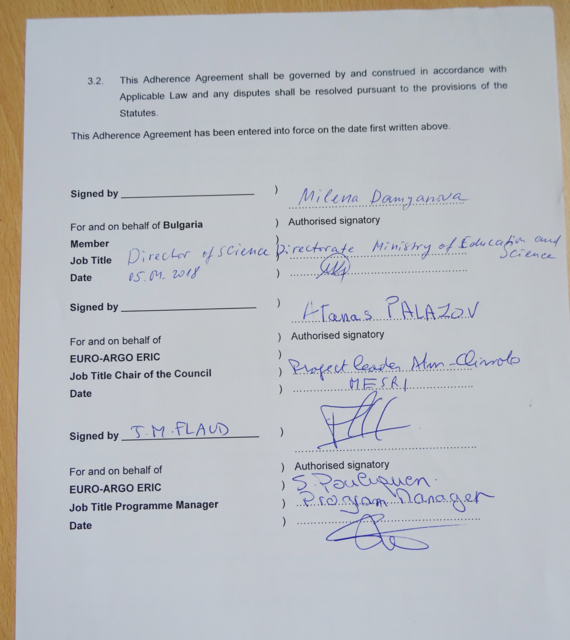 3.2. This Adherence Agreement shall be governed by and construed in accordance with
Applicable Law and any disputes shall be resolved pursuant to the provisions of the
Statutes.
This Adherence Agreement has been entered into force on the date first written above.
Signed by ) Milena Damyanova
For and on behalf of Bulgaria ) Authorised signatory
Member )
Job Title Director of Science Directorate Ministry of Education and Science
Date 05.04.2018 )
Signed by ) Atanas PALAZOV
For and on behalf of ) Authorised signatory
EURO-ARGO ERIC )
Job Title Chair of the Council ) Project leader
Date ) MESRI
Signed by J.M. FLAUD )
For and on behalf of ) Authorised signatory
EURO-ARGO ERIC ) S. Pouliquen
Job Title Programme Manager ) Program Manager
Date )